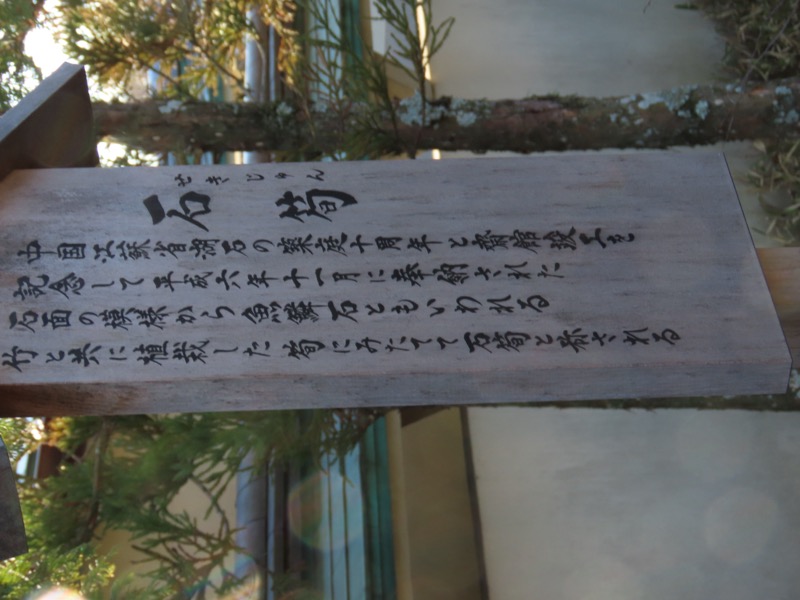 せきじゅん
石筍
中国江蘇省湖石の築庭十周年と齋館竣工を
記念して平成六年十一月に奉納された
石面の模様から魚鱗石ともいわれる
竹と共に植栽した筍にみたてて石筍と称される